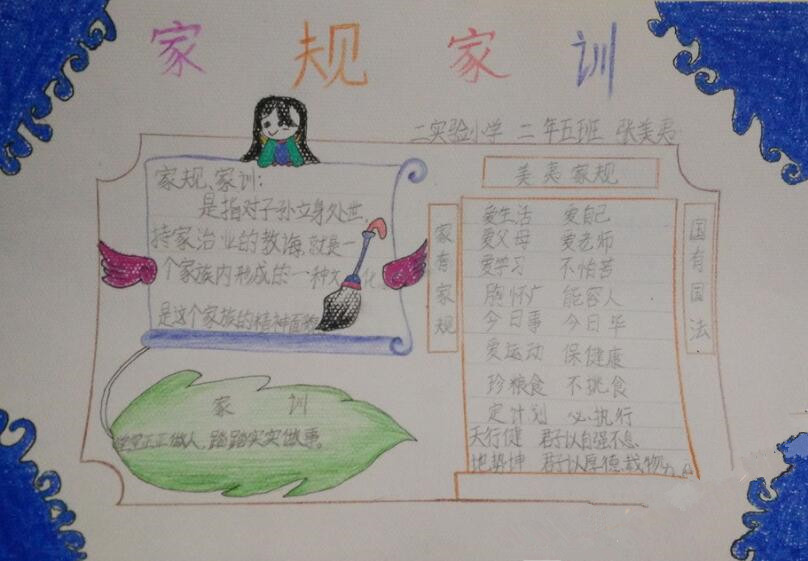 家规家训
二实验小学 二年五班 张美夷
家规、家训:
是指对子孙立身处世,
持家治业的教诲,就是一
个家族内形成的一种文化
是这个家族的精神面貌
家训
堂堂正正做人,踏踏实实做事。
美夷家规
家有家规
国有国法
爱生活 爱自己
爱父母 爱老师
爱学习 不怕苦
胸怀广 能容人
今日事 今日毕
爱运动 保健康
珍粮食 不挑食
定计划 必执行
天行健 君子以自强不息
地势坤 君子以厚德载物